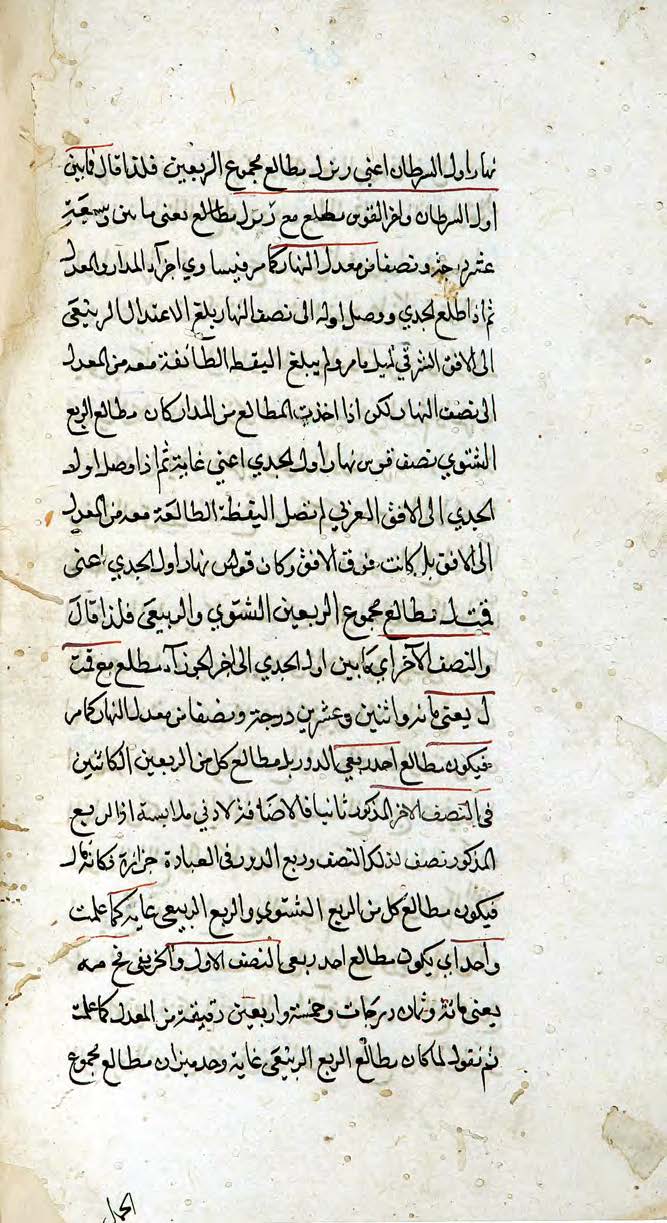 نهار اول السرطان اعني رنزل مطالع مجموع الربعين فلذا قال فما بين
اول السرطان واخر القوس مطلع مع رنزل مطالع يعني ما تين وسبعة
عشر جزء ونصفا من معدل النهار كما مر فيساوي اجزاء المدار والمعدل
ثم اذا طلع الجدي ووصل اوله الى نصف النهار بلغ الاعتدال الربيعي
الى الافق الشرقي لميل مامر ولم يبلغ اليقطة الطالعة معه من المعدل
الى نصف النهار لكن اذا اخذت المطالع من المدار كان مطالع الربع
الشتوي نصف قوس نهار اول الجدي اعني غاية ثم اذا وصل اول
الجدي الى الافق الغربي لم تصل اليقطة الطالعة معه من المعدل
الى الافق بل كانت فوق الافق وكان قوس نهار اول الجدي اعني
قتل مطالع مجموع الربعين الشتوي والربيعي فلذا قال
والنصف الآخر اي ما بين اول الجدي الى اخر الجوزآء مطلع مع قت
ل يعني مائة واثنين وعشرين درجة ونصفا من معدل النهار كما مر
فيكون مطالع احد ربعي الدور بل مطالع كل من الربعين الكائنين
في النصف الاخر المذكور ثانيا فالاضافة لادني ملابسة اذ الربع
المذكور نصف لذلك النصف وربع الدور في العبادة فكانه قال
فيكون مطالع كل من الربع الشتوي والربع الربيعي غاية كما علمت
واحد اي يكون مطالع احد ربعي النصف الاول والخريفي قح مه
يعني مائة وثمان درجات وخمسة واربعين دقيقة من المعدل كما علمت
ثم نقول لما كان مطالع الربع الربيعي غاية وحد ميزان مطالع مجموع
الحمل